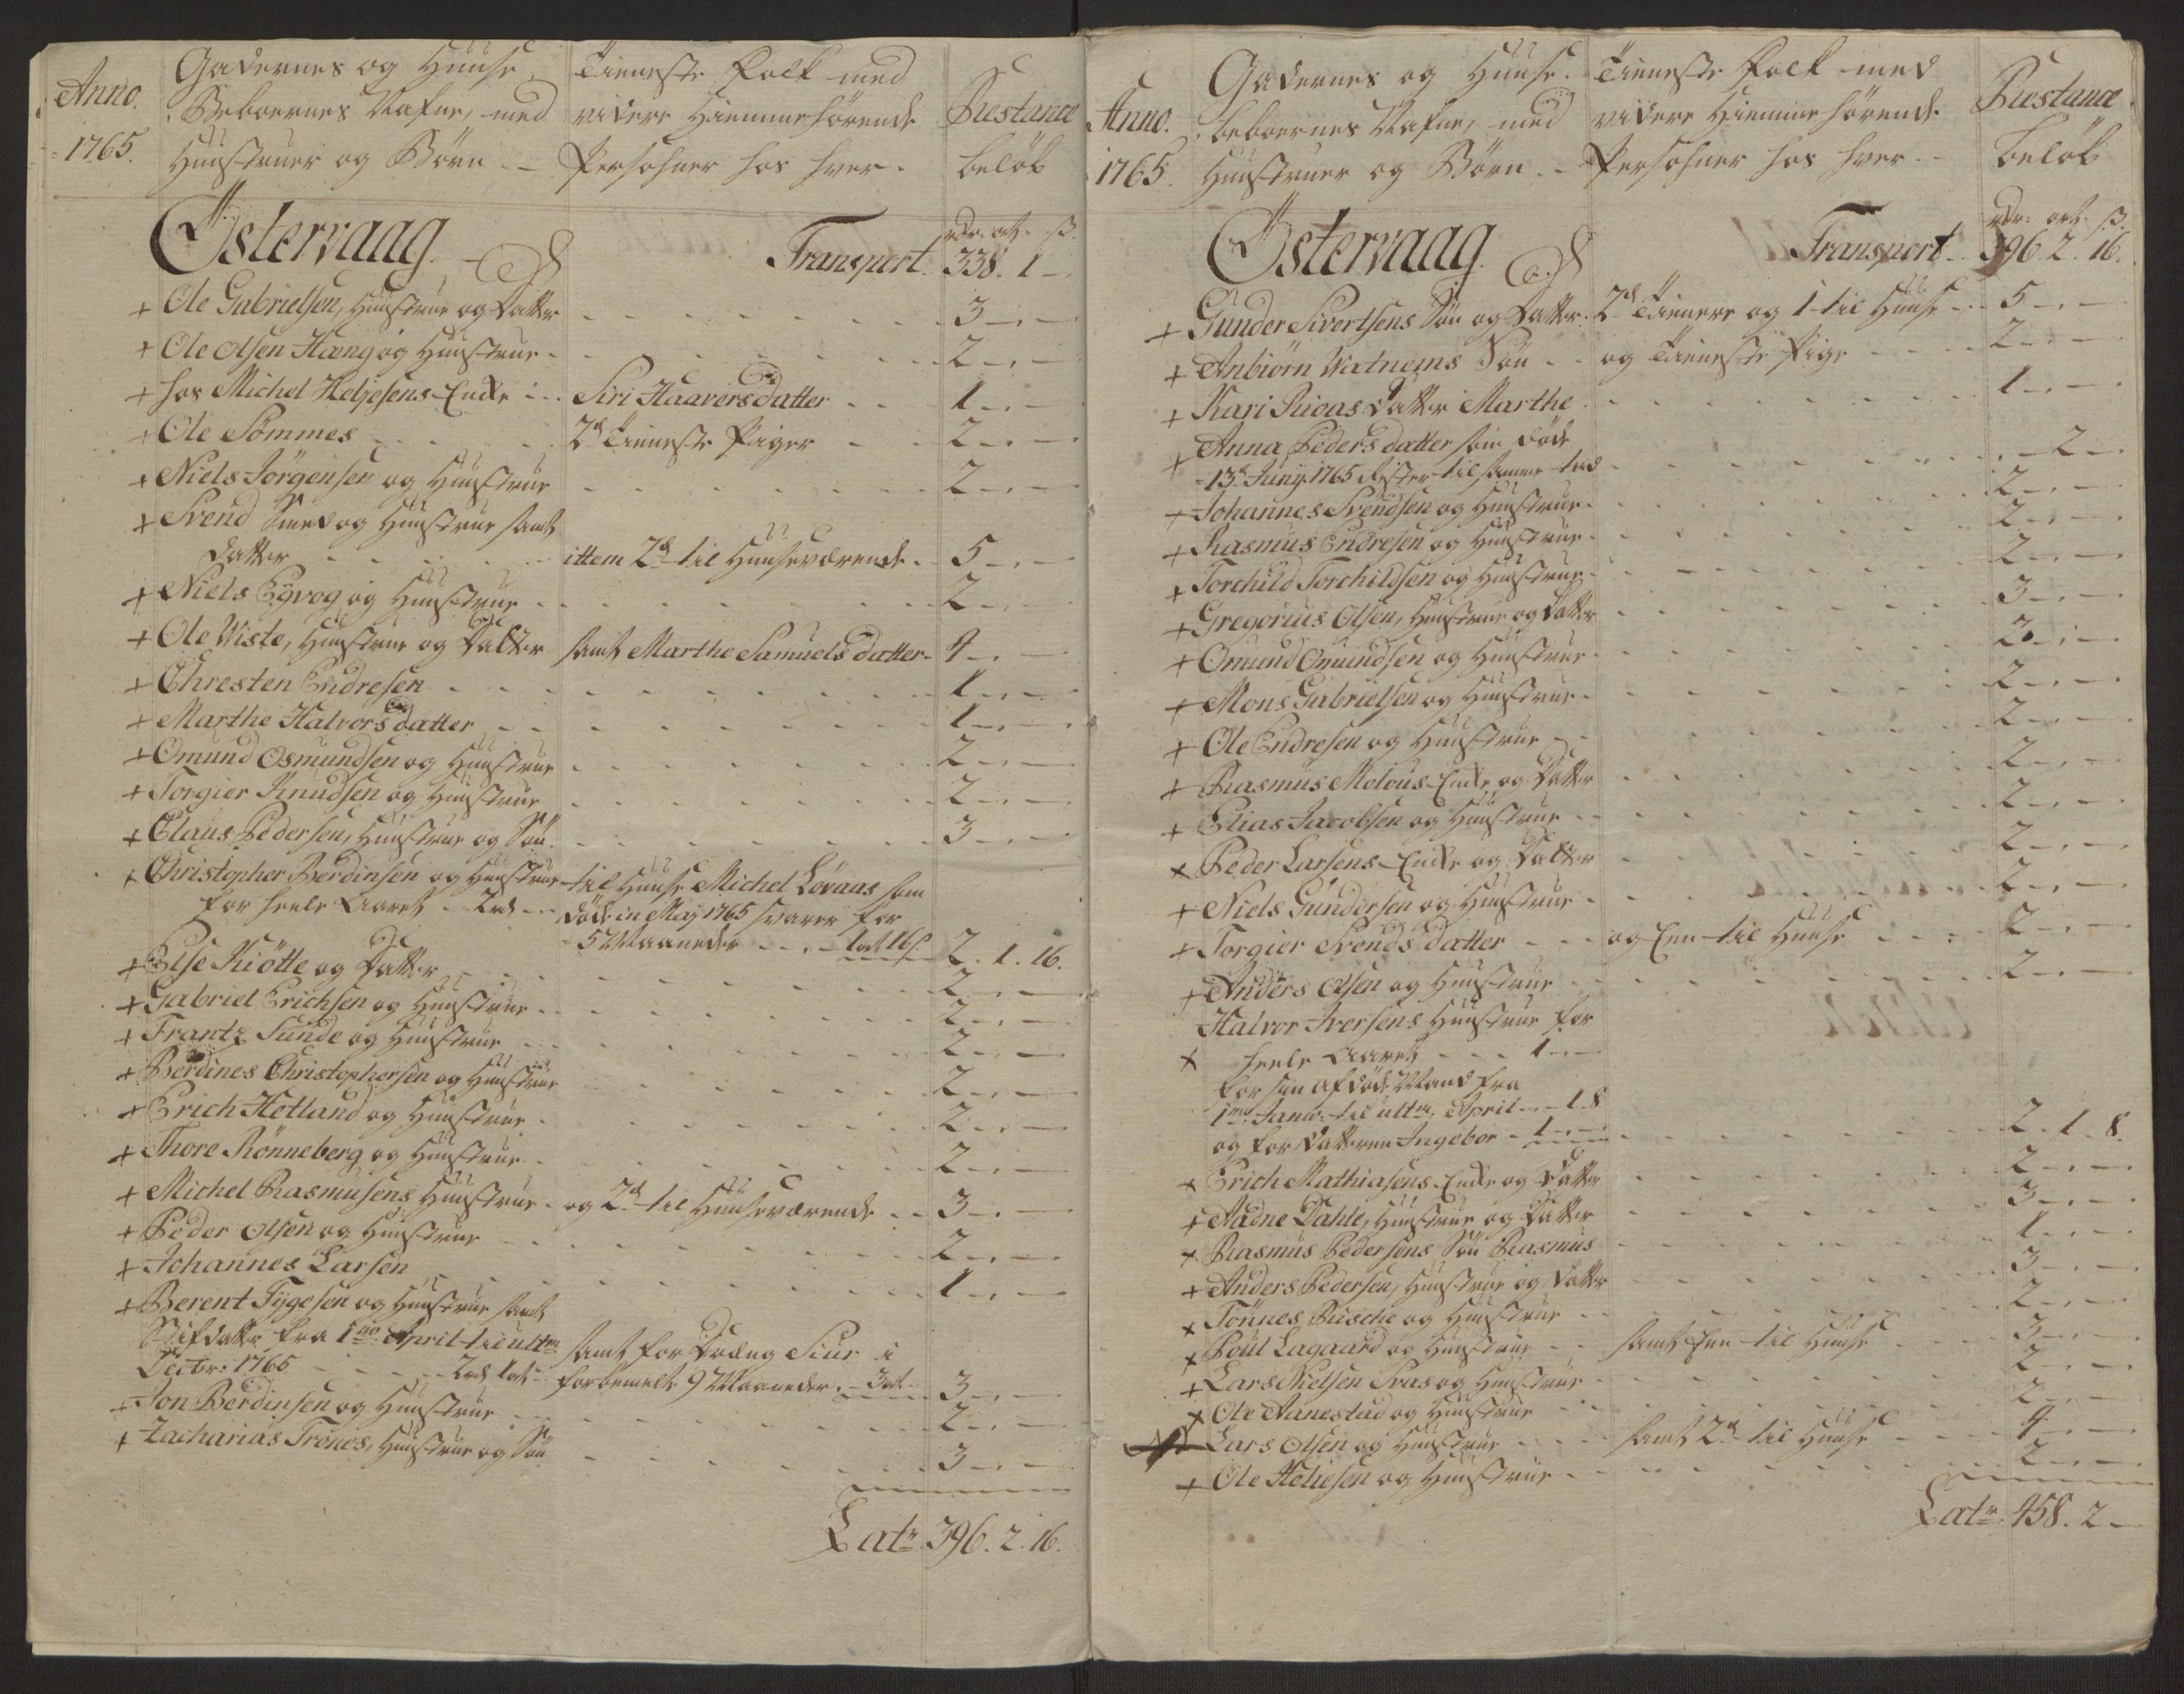 Anno.
1765.
Gadernes og Huuse
Beboernes Nafne, med
Hustruer og Börn --
Tieneste Folk med
videre Hiemmehörende
Persohner hos hver.
Qvæstance
belöb
Östervaag.
rdr. ort. ß.
Transport. 338. 1 -
+ Ole Gabrielsen, Hustrue og Datter 3 - . -
+ Ole Olsen Hæng og Huustrue 2 - . -
+ hos Michel Heljesens Enke Siri Haavers datter 1 - . -
+ Ole Sömmes 2de Tieneste Piger 2 - . -
+ Niels Jörgensen og Huustrue 2 - . -
+ Svend Smed og Huustrue samt
Datter ittem 2de til Huuseværende 5 - . -
+ Niels Egvog og Huustrue 2 - . -
+ Ole Viste, Huustrue og Datter samt Marthe Samuels datter 4 - . -
+ Chresten Endresen 1 - . -
+ Marthe Halvors datter 1 - . -
+ Omund Osmundsen og Huustrue 2 - . -
+ Torgier Knudsen og Huustrue 2 - . -
+ Claus Pedersen, Huustrue og Sön 3 - . -
+ Christopher Berdinsen og Huustrue til Huuse Michel Lövaas som
for heele Aaret - 2rd - döde in Maj 1765 svarer for
5 Maaneder - 1 ort 16 ß 2. 1. 16.
+ Else Kiötte og Datter 2 - . -
+ Gabriel Erichsen og Huustrue 2 - . -
+ Frantz Sunde og Huustrue 2 - . -
+ Berdines Christophersen og Huustrue 2 - . -
+ Erich Hetland og Huustrue 2 - . -
+ Thore Rönneberg og Huustrue 2 - . -
+ Michel Rasmusens Huustrue og 2de til Huuseværende 3 - . -
+ Peder Olsen og Huustrue 2 - . -
+ Johannes Larsen 1 - . -
+ Berent Tygesen og Huustrue samt
Stifdatter fra 1mo April til ultm samt for Dræng Siur i
Decbr: 1765 - 2rd 1ort forbemelte 9 Maaneder - 3 ort 3 - . -
+ Jon Berdinsen og Huustrue 2 - . -
+ Zacharias Trönes, Huustrue og Sön 3 - . -
Latr. 396. 2. 16.
Anno.
1765.
Gadernes og Huuse
beboernes Nafne, med
Huustruer og Börn --
Tieneste Folk med
videre Hiemmehörende
Persohner hos hver --
Qvæstance
belöb
Östervaag.
rdr. ort. ß.
Transport 396. 2. 16.
+ Gunder Sivertsens Sön og Datter 2de Tienere og 1 til Huuse 5 - . -
+ Anbiörn Watnems Sön og Tieneste Pige 2 - . -
+ Kari Ricas Datter Marthe 1 - . -
+ Anna Peders datter som döde
13de Juny 1765 Rester til samme tid - 2 -
+ Johannes Svendsen og Huustrue 2 - . -
+ Rasmus Endresen og Huustrue 2 - . -
+ Torchild Torchildsen og Huustrue 2 - . -
+ Gregorius Olsen, Huustrue og Datter 3 - . -
+ Omund Omundsen og Huustrue 2 - . -
+ Mons Gabrielsen og Huustrue 2 - . -
+ Ole Endresen og Huustrue 2 - . -
+ Rasmus Molous Enke og Datter 2 - . -
+ Elias Jacobsen og Huustrue 2 - . -
+ Peder Larsens Enke og Datter 2 - . -
+ Niels Gundersen og Huustrue 2 - . -
+ Torgier Svends datter og Een til Huuse 2 - . -
+ Anders Olsen og Huustrue 2 - . -
Halvor Iversens Huustrue for
+ heele Aaret - 1 - . -
for sin afdöde Mand fra
1mo Janv. til ultm. April - 1. 8
og for Datteren Ingebor - 1 - . - 2. 1. 8.
+ Erich Mathiasens Enke og Datter 2 - . -
+ Aadne Dahle, Huustrue og Datter 3 - . -
+ Rasmus Pedersens Sön Rasmus 1 - . -
+ Anders Pedersen, Huustrue og Datter 3 - . -
+ Tönnes Busche og Huustrue 2 - . -
+ Poul Lagaard og Huustrue samt Een til Huuse 3 - . -
+ Lars Nielsen Svas og Huustrue 2 - . -
+ Ole Aanestad og Huustrue 2 - . -
Lars Olsen og Huustrue samt 2de til Huuse 4 - . -
+ Ole Heliesen og Huustrue 2 - . -
Latr. 458. 2 -